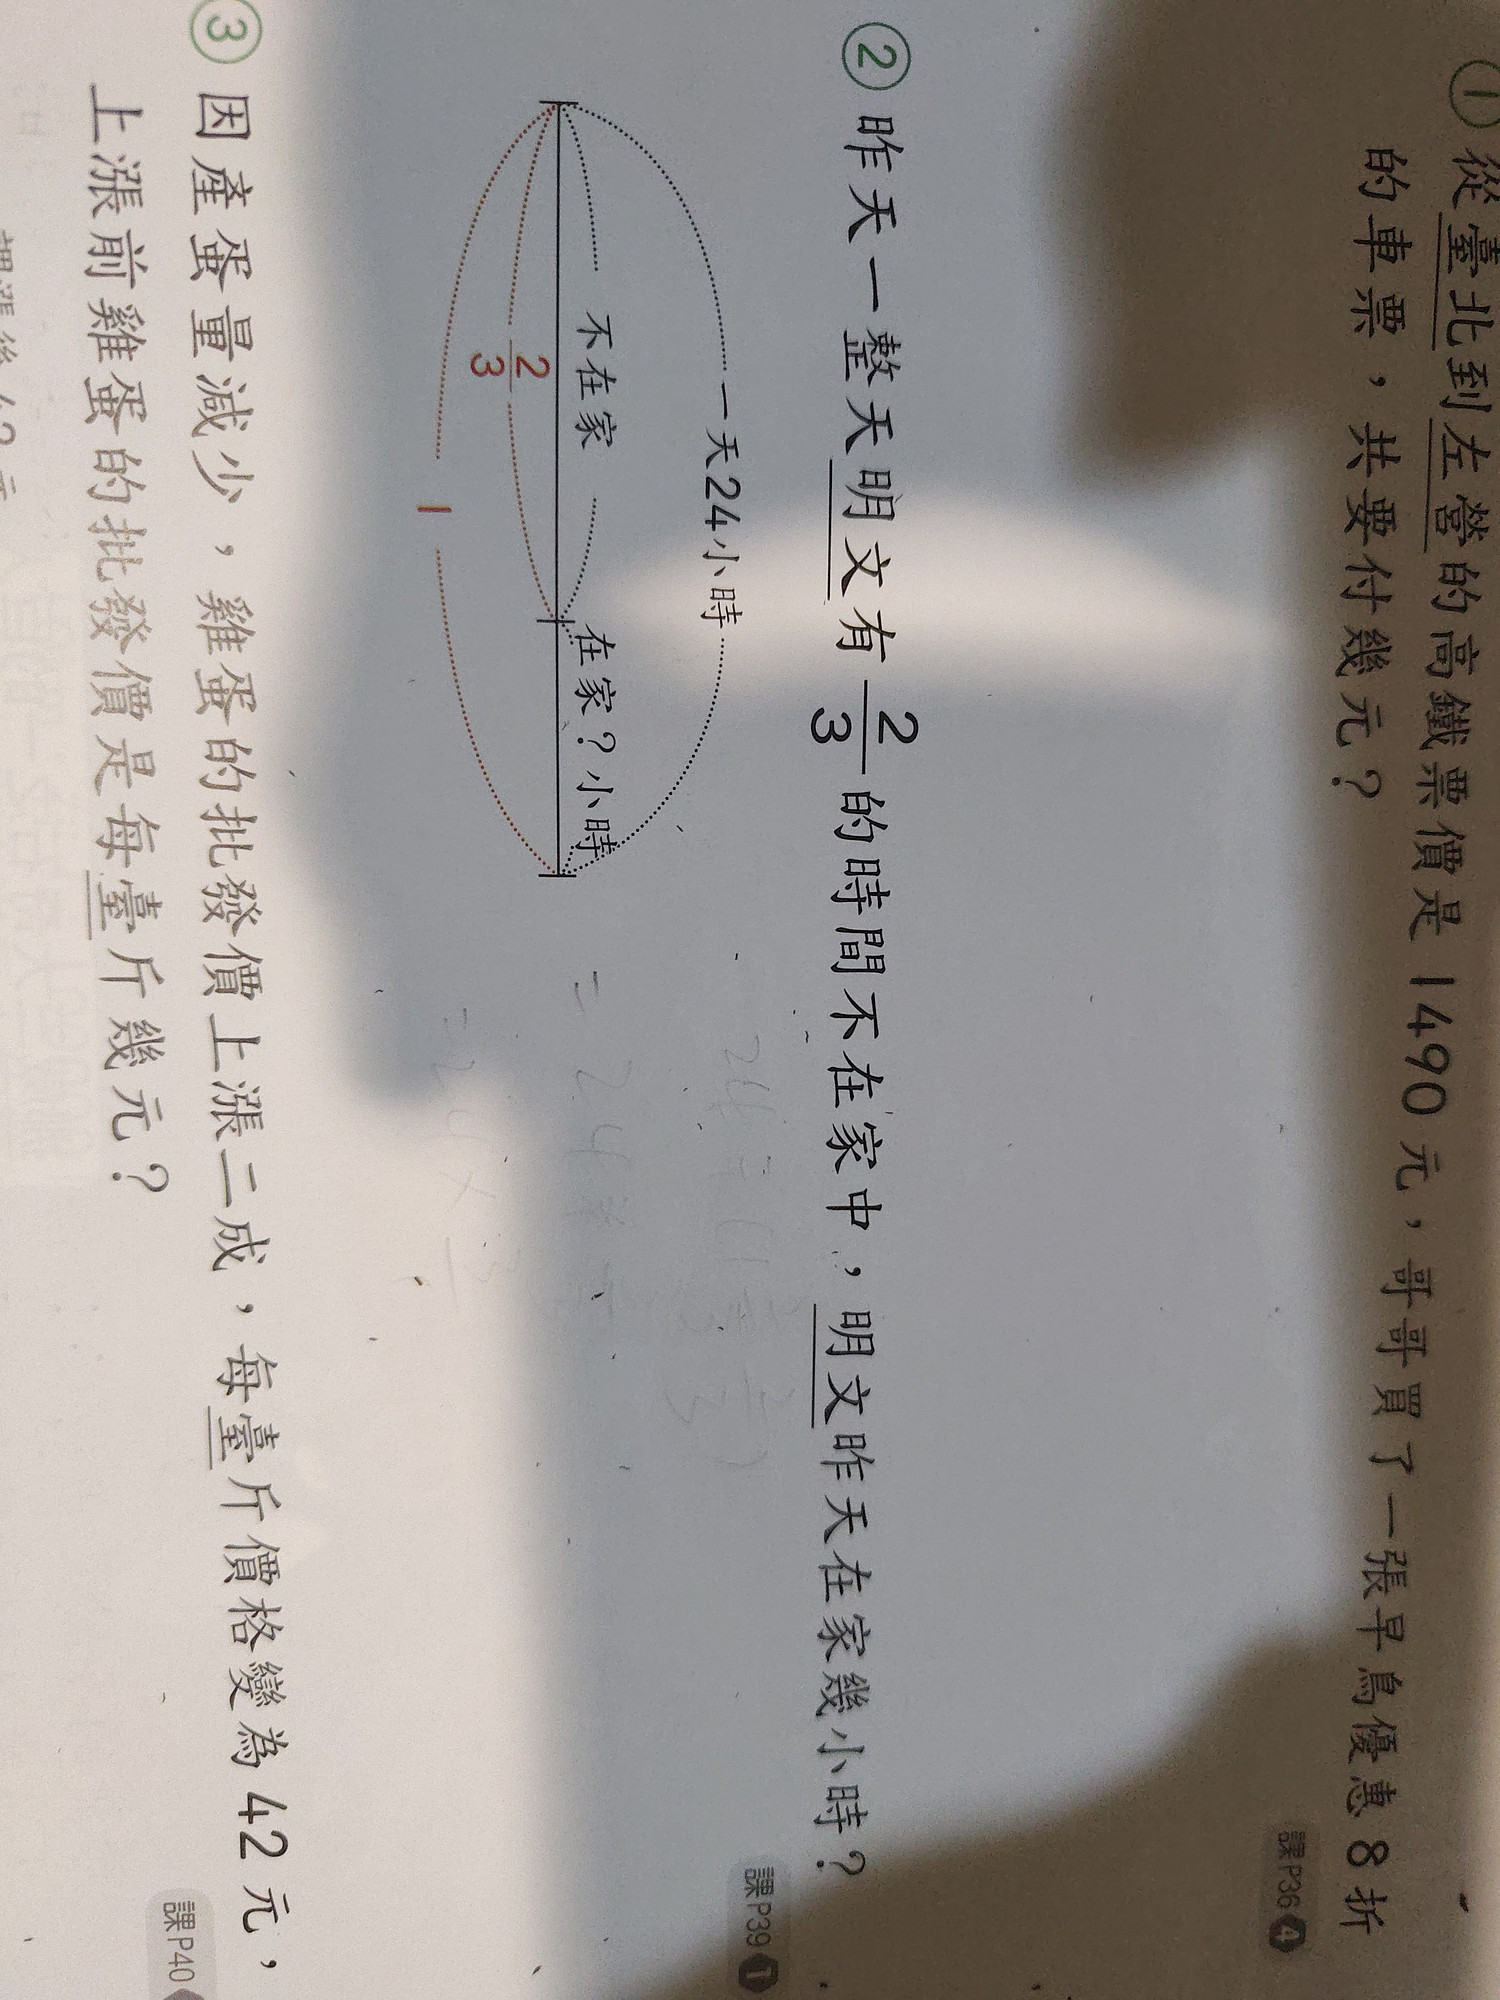 ① 從臺北到左營的高鐵票價是 1490 元，哥哥買了一張早鳥優惠 8 折
的車票，共要付幾元？
課P36 4
② 昨天一整天明文有 2/3 的時間不在家中，明文昨天在家幾小時？
課P39 1
一天24小時
不在家
在家？小時
2/3
1
③ 因產蛋量減少，雞蛋的批發價上漲二成，每臺斤價格變為 42 元，
上漲前雞蛋的批發價是每臺斤幾元？
課P40